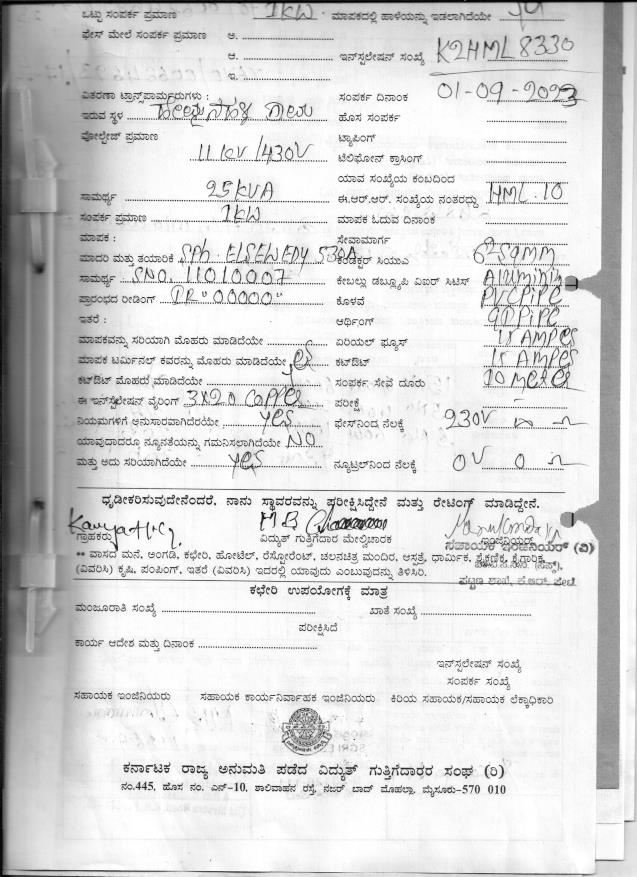 ಒಟ್ಟು ಸಂಪರ್ಕ ಪ್ರಮಾಣ 1KW ಮಾಪಕದಲ್ಲಿ ಹಾಳೆಯನ್ನು ಇಡಲಾಗಿದೆಯೇ
ಫೇಸ್ ಮೇಲೆ ಸಂಪರ್ಕ ಪ್ರಮಾಣ ಅ.
ಆ. ಇನ್‌ಸ್ಟಲೇಷನ್ ಸಂಖ್ಯೆ K2HML8330
ಇ.
ವಿತರಣಾ ಟ್ರಾನ್ಸ್‌ಪಾರ್ಮರುಗಳು : ಸಂಪರ್ಕ ದಿನಾಂಕ 01-09-2023
ಇರುವ ಸ್ಥಳ ಗ್ರಾಮ ಹೊಸ ಸಂಪರ್ಕ
ವೋಲ್ಟೇಜ್ ಪ್ರಮಾಣ ಟ್ಯಾಪಿಂಗ್
11KV/430V ಟೆಲಿಫೋನ್ ಕ್ರಾಸಿಂಗ್
ಯಾವ ಸಂಖ್ಯೆಯ ಕಂಬದಿಂದ
ಸಾಮರ್ಥ್ಯ 25KVA ಈ.ಆರ್.ಆರ್. ಸಂಖ್ಯೆಯ ನಂತರದ್ದು HML.10
ಸಂಪರ್ಕ ಪ್ರಮಾಣ 1KW ಮಾಪಕ ಓದುವ ದಿನಾಂಕ
ಮಾಪಕ : ಸೇವಾಮಾರ್ಗ
ಮಾದರಿ ಮತ್ತು ತಯಾರಿಕೆ Sph. ELSEWEDY 530A ಕಂಡಕ್ಟರ್ ಸಿಯುಎ Sqmm
ಸಾಮರ್ಥ್ಯ SNO. 11010007 ಕೇಬಲ್ಲು ಡಬ್ಲ್ಯೂಪಿ ವಿಐರ್ ಸಿಟಿಸ್
ಪ್ರಾರಂಭದ ರೀಡಿಂಗ್ IR "00000" ಕೊಳವೆ PVC PIPE
ಇತರೆ : ಆರ್ಥಿಂಗ್ GI PIPE
ಮಾಪಕವನ್ನು ಸರಿಯಾಗಿ ಮೊಹರು ಮಾಡಿದೆಯೇ ಏರಿಯಲ್ ಫ್ಯೂಸ್ 15 AMPES
ಮಾಪಕ ಟರ್ಮಿನಲ್ ಕವರನ್ನು ಮೊಹರು ಮಾಡಿದೆಯೇ yes ಕಟ್‌ಔಟ್ 15 AMPES
ಕಟ್‌ಔಟ್ ಮೊಹರು ಮಾಡಿದೆಯೇ ಸಂಪರ್ಕ ಸೇವೆ ದೂರು 10 Meters
ಈ ಇನ್‌ಸ್ಟಲೇಷನ್ ವೈರಿಂಗ್ 3X20 Copper ಪರೀಕ್ಷೆ -
ನಿಯಮಗಳಿಗೆ ಅನುಸಾರವಾಗಿದೆರೆಯೇ yes ಫೇಸ್‌ನಿಂದ ನೆಲಕ್ಕೆ 230V
ಯಾವುದಾದರೂ ನ್ಯೂನತೆಯನ್ನು ಗಮನಿಸಲಾಗಿದೆಯೇ NO
ಮತ್ತು ಅದು ಸರಿಯಾಗಿದೆಯೇ yes ನ್ಯೂಟ್ರಲ್‌ನಿಂದ ನೆಲಕ್ಕೆ 0V 0
ಧೃಡೀಕರಿಸುವುದೇನೆಂದರೆ, ನಾನು ಸ್ಥಾವರವನ್ನು ಪರೀಕ್ಷಿಸಿದ್ದೇನೆ ಮತ್ತು ರೇಟಿಂಗ್ ಮಾಡಿದ್ದೇನೆ.
ಗ್ರಾಹಕರು ವಿದ್ಯುತ್ ಗುತ್ತಿಗೆದಾರ ಮೇಲ್ವಿಚಾರಕ ಸಹಾಯಕ ಇಂಜಿನಿಯರ್ (ವಿ)
** ವಾಸದ ಮನೆ, ಅಂಗಡಿ, ಕಛೇರಿ, ಹೋಟೆಲ್, ರೆಸ್ಟೋರೆಂಟ್, ಚಲನಚಿತ್ರ ಮಂದಿರ, ಆಸ್ಪತ್ರೆ, ಧಾರ್ಮಿಕ, ಶೈಕ್ಷಣಿಕ, ಕೈಗಾರಿಕ,
(ವಿವರಿಸಿ) ಕೃಷಿ, ಪಂಪಿಂಗ್, ಇತರೆ (ವಿವರಿಸಿ) ಇದರಲ್ಲಿ ಯಾವುದು ಎಂಬುವುದನ್ನು ತಿಳಿಸಿರಿ. ಪಟ್ಟಣ ಶಾಖೆ, ಕೆ.ಆರ್. ಪೇಟೆ
ಕಛೇರಿ ಉಪಯೋಗಕ್ಕೆ ಮಾತ್ರ
ಮಂಜೂರಾತಿ ಸಂಖ್ಯೆ ಖಾತೆ ಸಂಖ್ಯೆ
ಪರೀಕ್ಷಿಸಿದೆ
ಕಾರ್ಯ ಆದೇಶ ಮತ್ತು ದಿನಾಂಕ
ಇನ್‌ಸ್ಟಲೇಷನ್ ಸಂಖ್ಯೆ
ಸಂಪರ್ಕ ಸಂಖ್ಯೆ
ಸಹಾಯಕ ಇಂಜಿನಿಯರು ಸಹಾಯಕ ಕಾರ್ಯನಿರ್ವಾಹಕ ಇಂಜಿನಿಯರು ಕಿರಿಯ ಸಹಾಯಕ/ಸಹಾಯಕ ಲೆಕ್ಕಾಧಿಕಾರಿ
ಕರ್ನಾಟಕ ರಾಜ್ಯ ಅನುಮತಿ ಪಡೆದ ವಿದ್ಯುತ್ ಗುತ್ತಿಗೆದಾರರ ಸಂಘ (ರಿ)
ನಂ.445, ಹೊಸ ನಂ. ಎನ್-10, ಶಾಲಿವಾಹನ ರಸ್ತೆ, ನಜರ್ ಬಾದ್ ಮೊಹಲ್ಲಾ, ಮೈಸೂರು-570 010